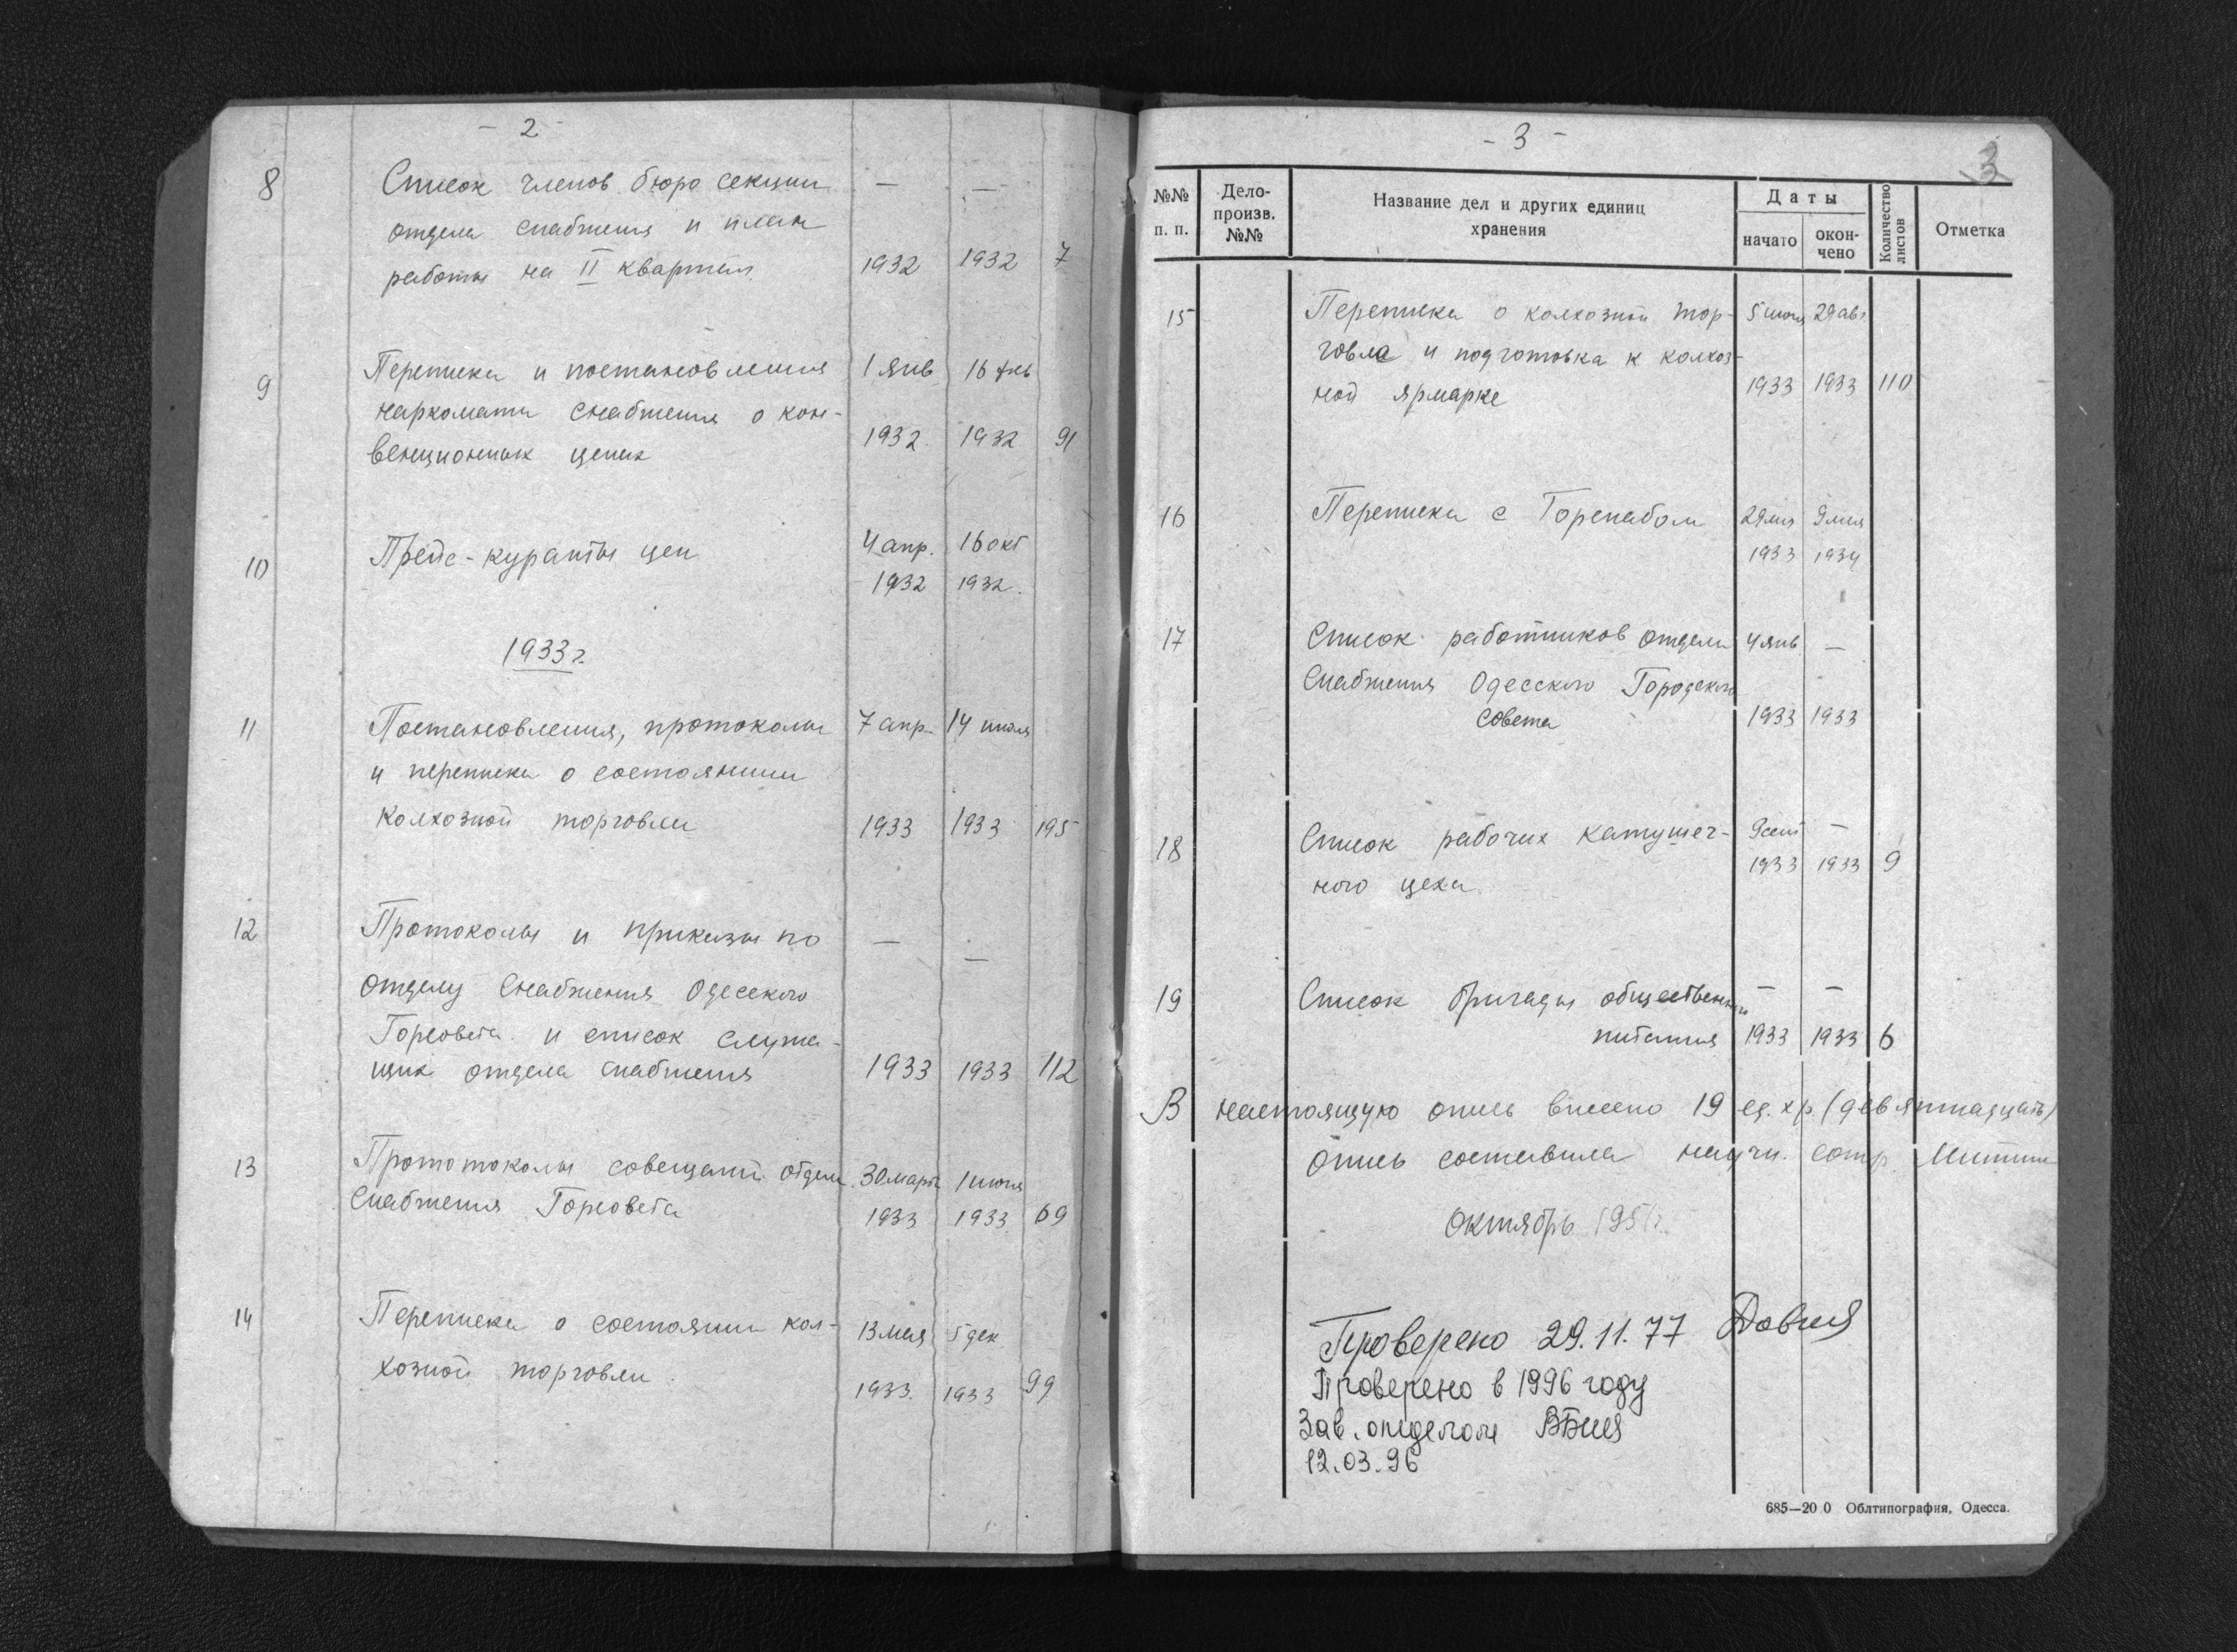 - 2 -
8 Список членов бюро секции — —
отдела снабжения и план
работы на II квартал 1932 1932 7
9 Переписка и постановления 1 янв 16
наркомата снабжения о кон-
венционных ценах 1932 1932 91
10 Прейс-куранты цен 4 апр. 16 окт
1932 1932.
1933 г.
11 Постановления, протоколы 7 апр. 14 июля
и переписка о состоянии
колхозной торговли 1933 1933 195
12 Протоколы и приказы по — —
отделу Снабжения Одесского
Горсовета и список служа-
щих отдела снабжения 1933 1933 112
13 Прототоколы совещаний отдела 30 март 1 июня
Снабжения Горсовета 1933 1933 69
14 Переписка о состоянии кол- 13 мая 5 дек.
хозной торговли 1933. 1933 99
- 3 -
3
№№ п. п.
Дело-
произв.
№№
Название дел и других единиц
хранения
Даты
начато
окон-
чено
Количество
листов
Отметка
15 Переписка о колхозной тор- 5 29 авг
говла и подготовка к колхоз-
ной ярмарке 1933 1933 110
16 Переписка с Горснабом 29 мая 9 мая
1933 1934
17 Список работников отдела 4 янв. —
Снабжения Одесского Городского
совета 1933 1933
18 Список рабочих катушеч- 9 сент —
ного цеха 1933 1933 9
19 Список бригады общественного — —
питания 1933 1933 6
В настоящую опись внесено 19 ед. хр. (девятнадцать)
Опись составила научн. сотр.
Октябрь 1951г.
Проверено 29.11.77
Проверено в 1996 году
Зав. отделом
12.03.96
685—20 0 Облтипография, Одесса.